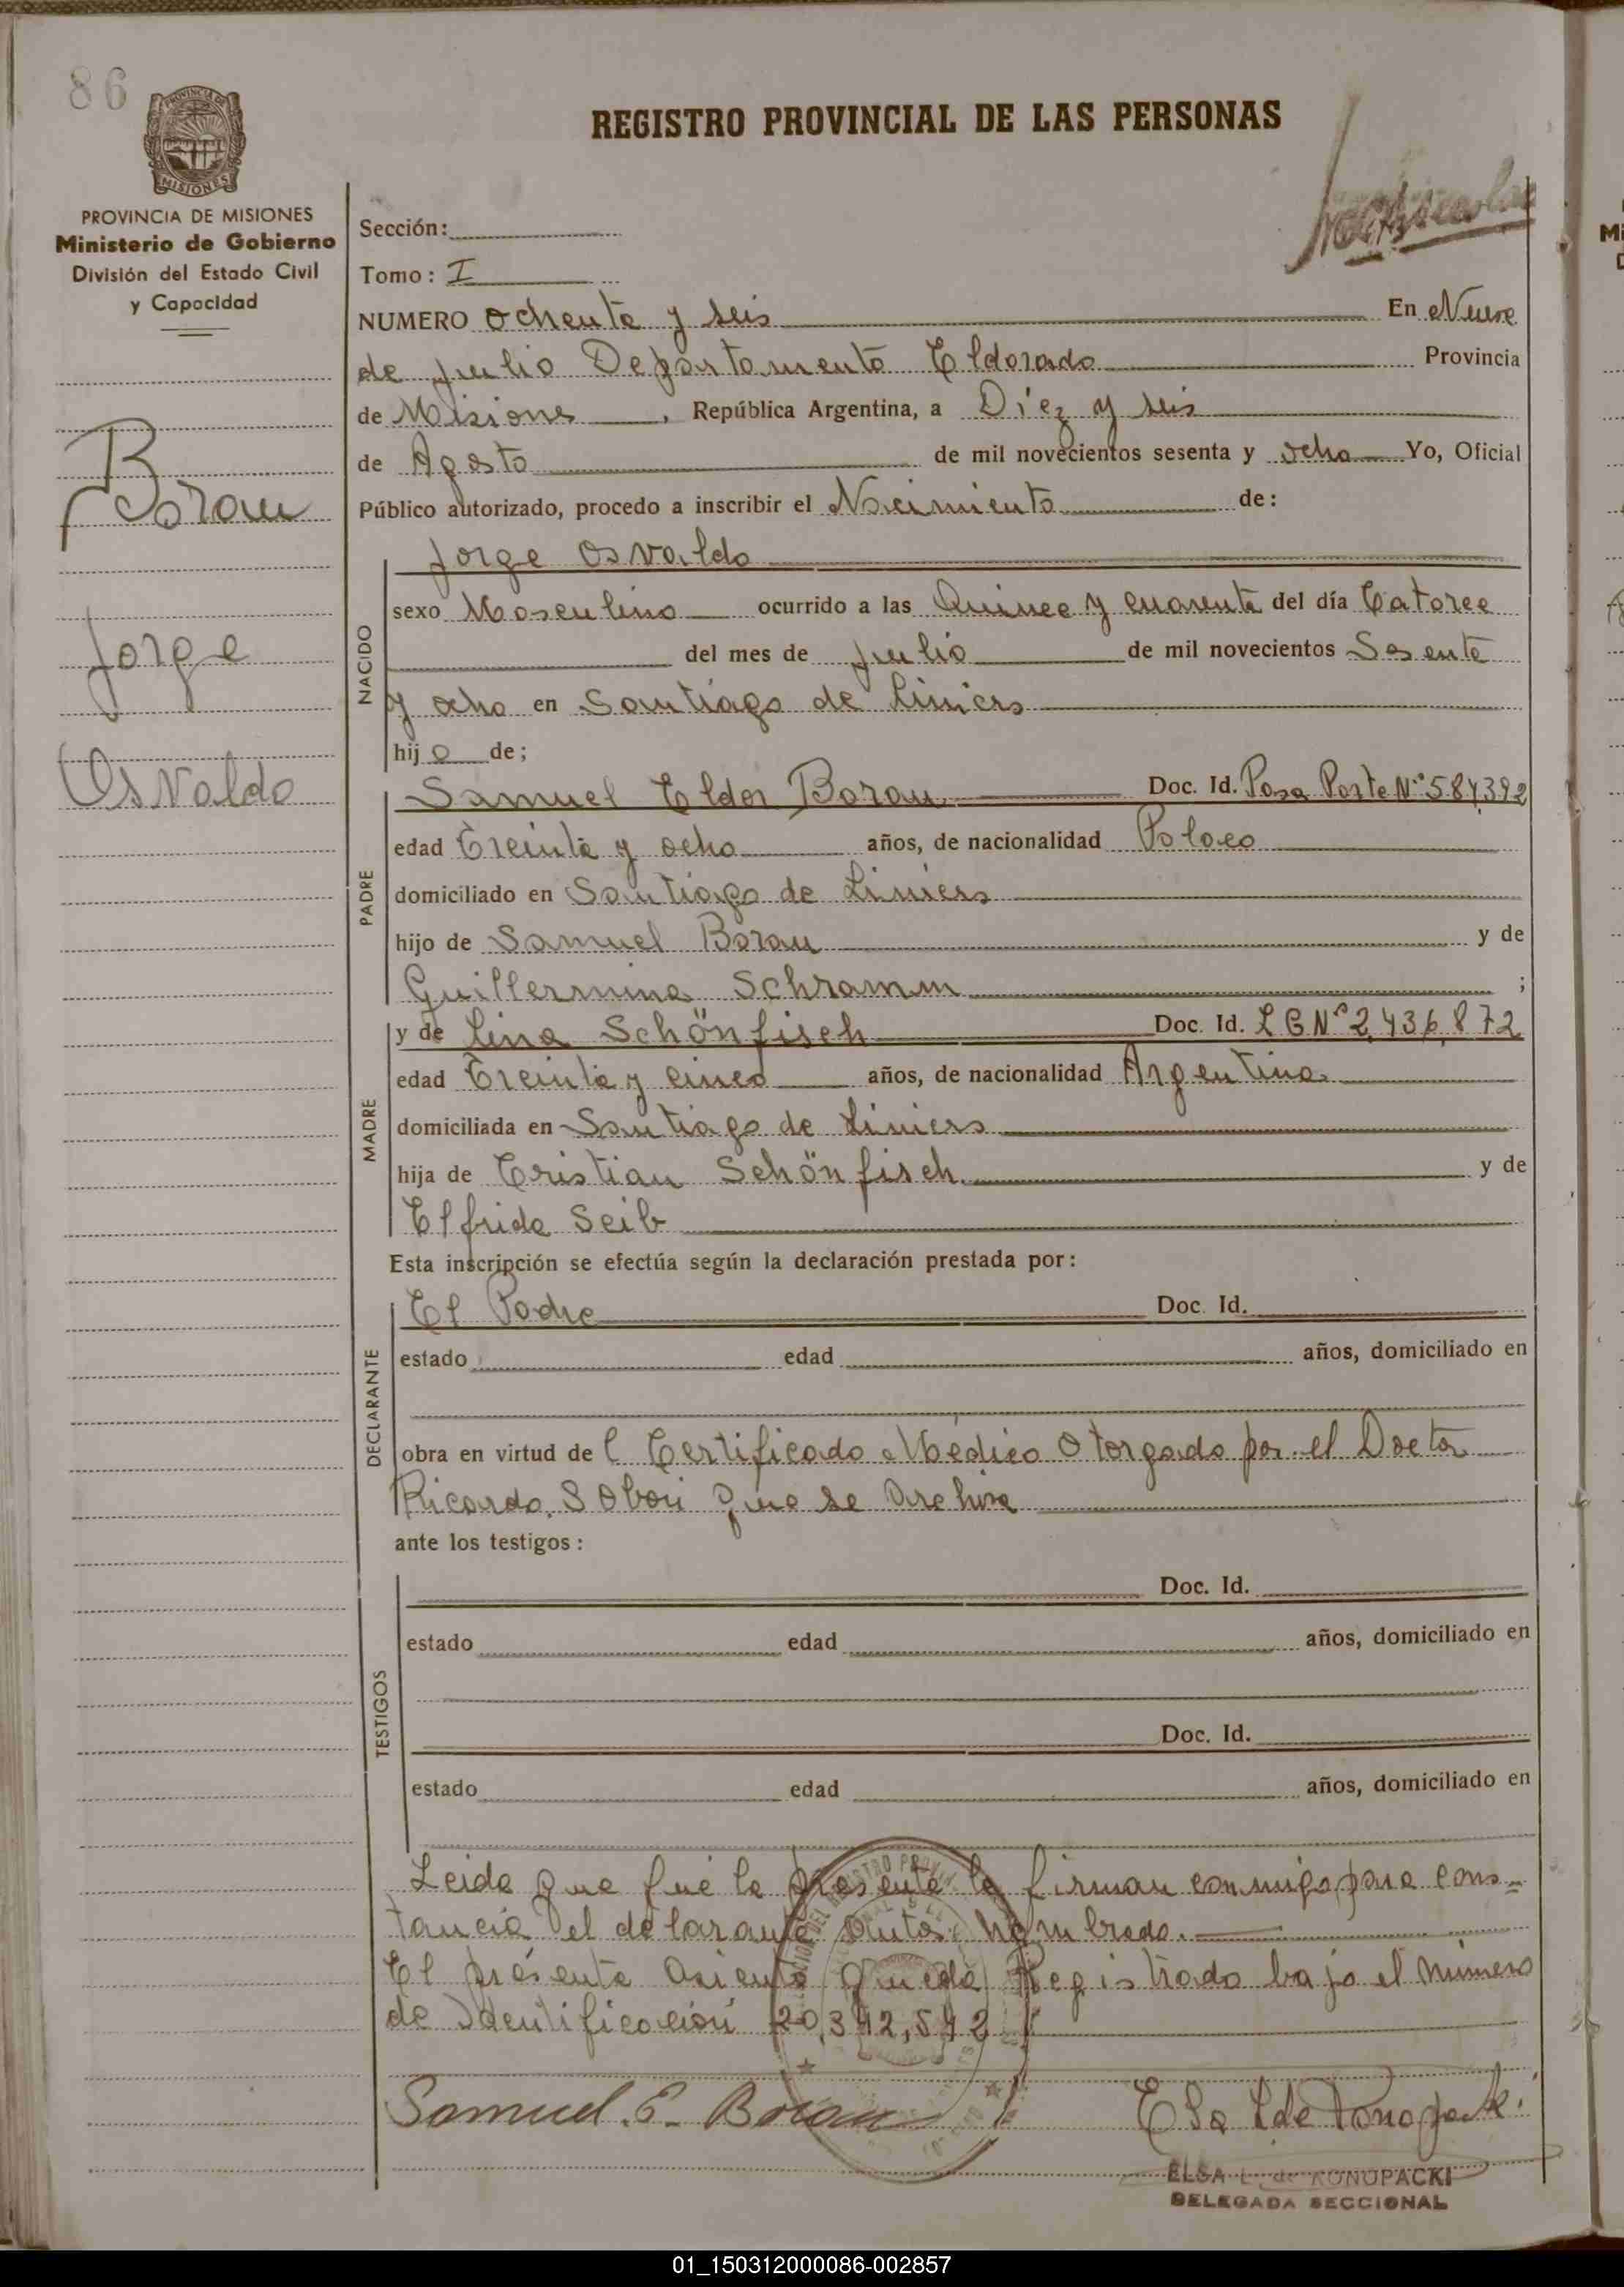 86
REGISTRO PROVINCIAL DE LAS PERSONAS
PROVINCIA DE MISIONES
MISIONES
PROVINCIA DE MISIONES
Ministerio de Gobierno
División del Estado Civil
y Capacidad
Boran
Jorge
Osvaldo
Sección:
Tomo: I
NUMERO ochenta y seis En Nueve
de Julio Departamento Eldorado Provincia
de Misiones, República Argentina, a Diez y seis
de Agosto de mil novecientos sesenta y ocho Yo, Oficial
Público autorizado, procedo a inscribir el Nacimiento de:
NACIDO
Jorge Osvaldo
sexo Masculino ocurrido a las Quince y cuarenta del día Catorce
del mes de Julio de mil novecientos Sesenta
y ocho en Santiago de Liniers
hijo de;
PADRE
Samuel Eldor Boran Doc. Id. Pasa Porte Nº 584392
edad Treinta y ocho años, de nacionalidad Polaco
domiciliado en Santiago de Liniers
hijo de Samuel Boran y de
Guillermina Schramm ;
MADRE
y de Lina Schönfisch Doc. Id. L C Nº 2,436,872
edad Treinta y cinco años, de nacionalidad Argentina
domiciliada en Santiago de Liniers
hija de Cristian Schönfisch y de
Elfrida Seib
Esta inscripción se efectúa según la declaración prestada por:
DECLARANTE
El Padre Doc. Id.
estado edad años, domiciliado en
obra en virtud del Certificado Médico Otorgado por el Doctor
Ricardo que se Archiva
ante los testigos:
TESTIGOS
Doc. Id.
estado edad años, domiciliado en
Doc. Id.
estado edad años, domiciliado en
Leida que fué la presente la firman conmigo para cons-
tancia el declarante antes nombrado.
El presente asiento queda Registrado bajo el número
de Identificación 20,392,592
Samuel E. Boran
Elsa L de Konopacki
ELSA L. de KONOPACKI
DELEGADA SECCIONAL
01_150312000086-002857